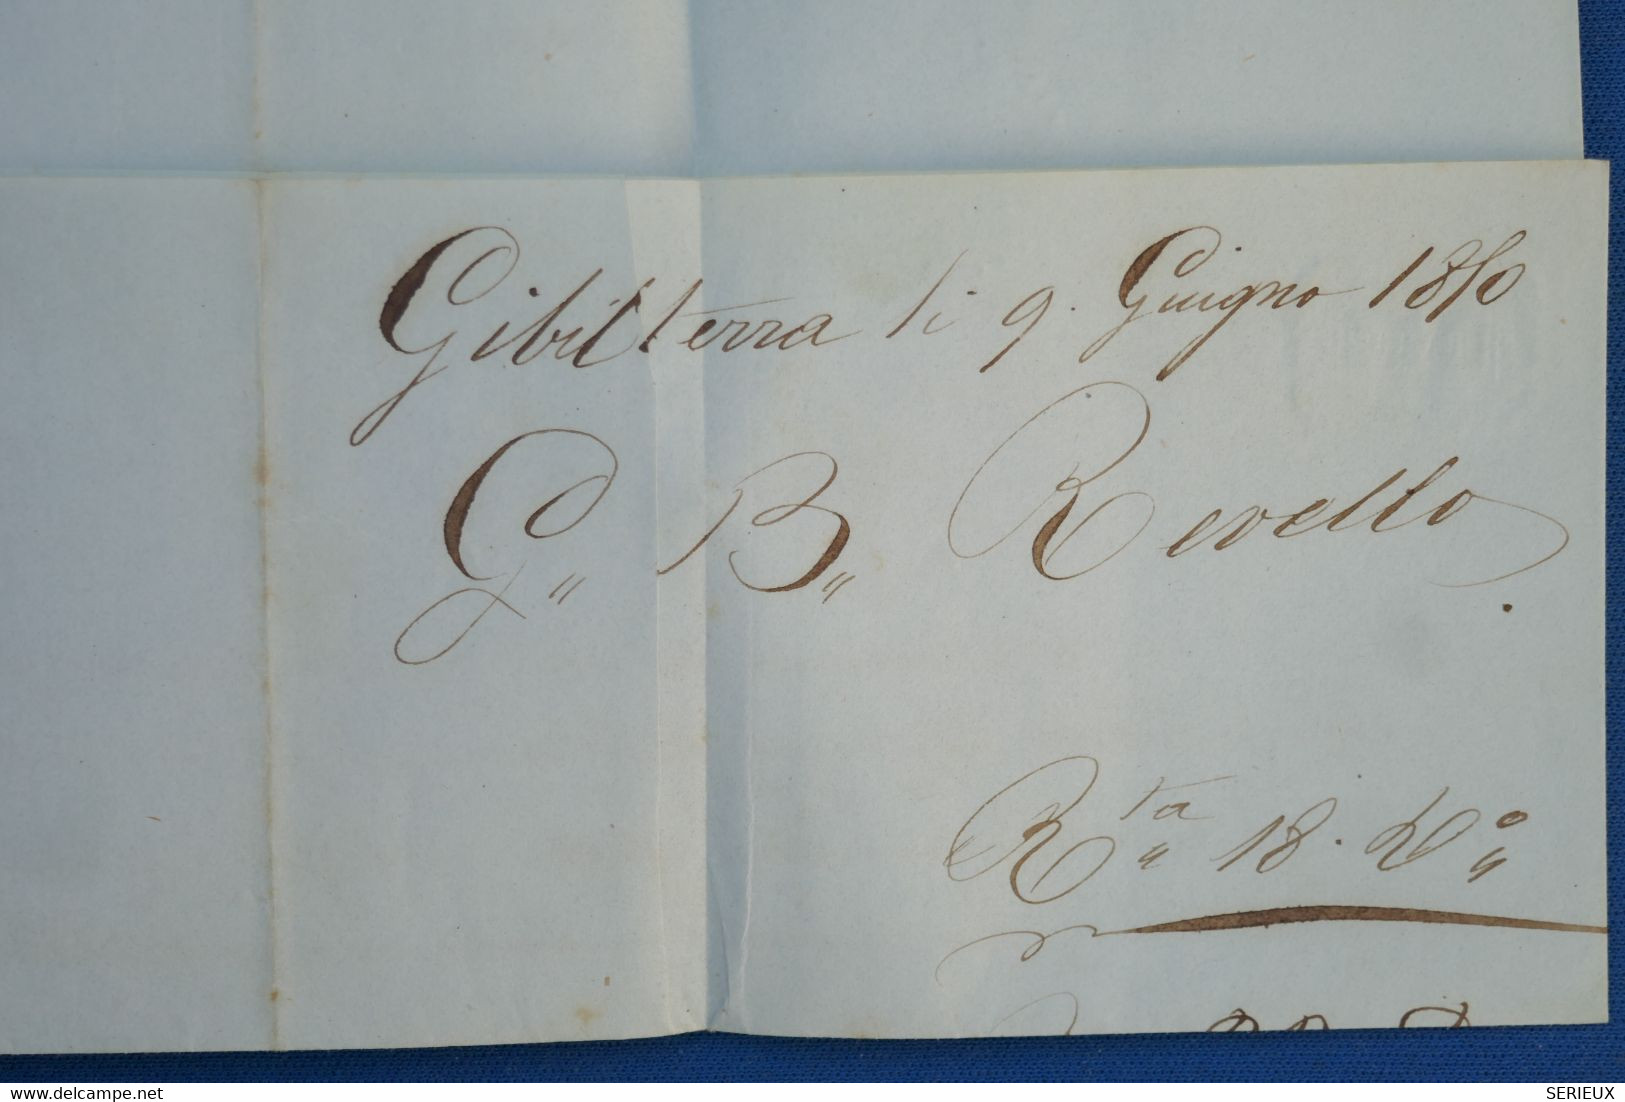 Gibilterra li 9. Giugno 1870
G„ B„ Revello
R.ta 18. do
delcampe.net
SERIEUX